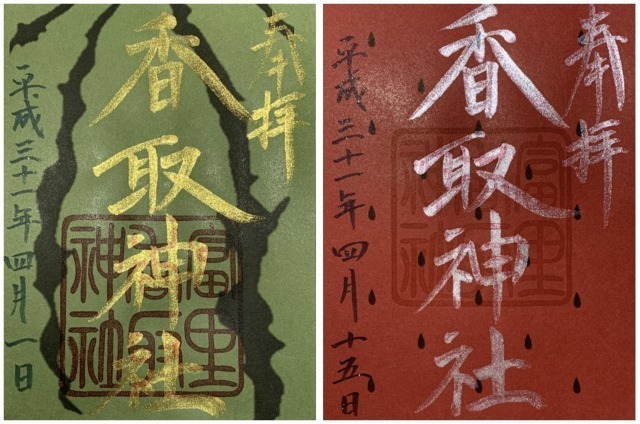 奉拝
香取神社
平成三十一年四月一日
奉拝
香取神社
平成三十一年四月十五日